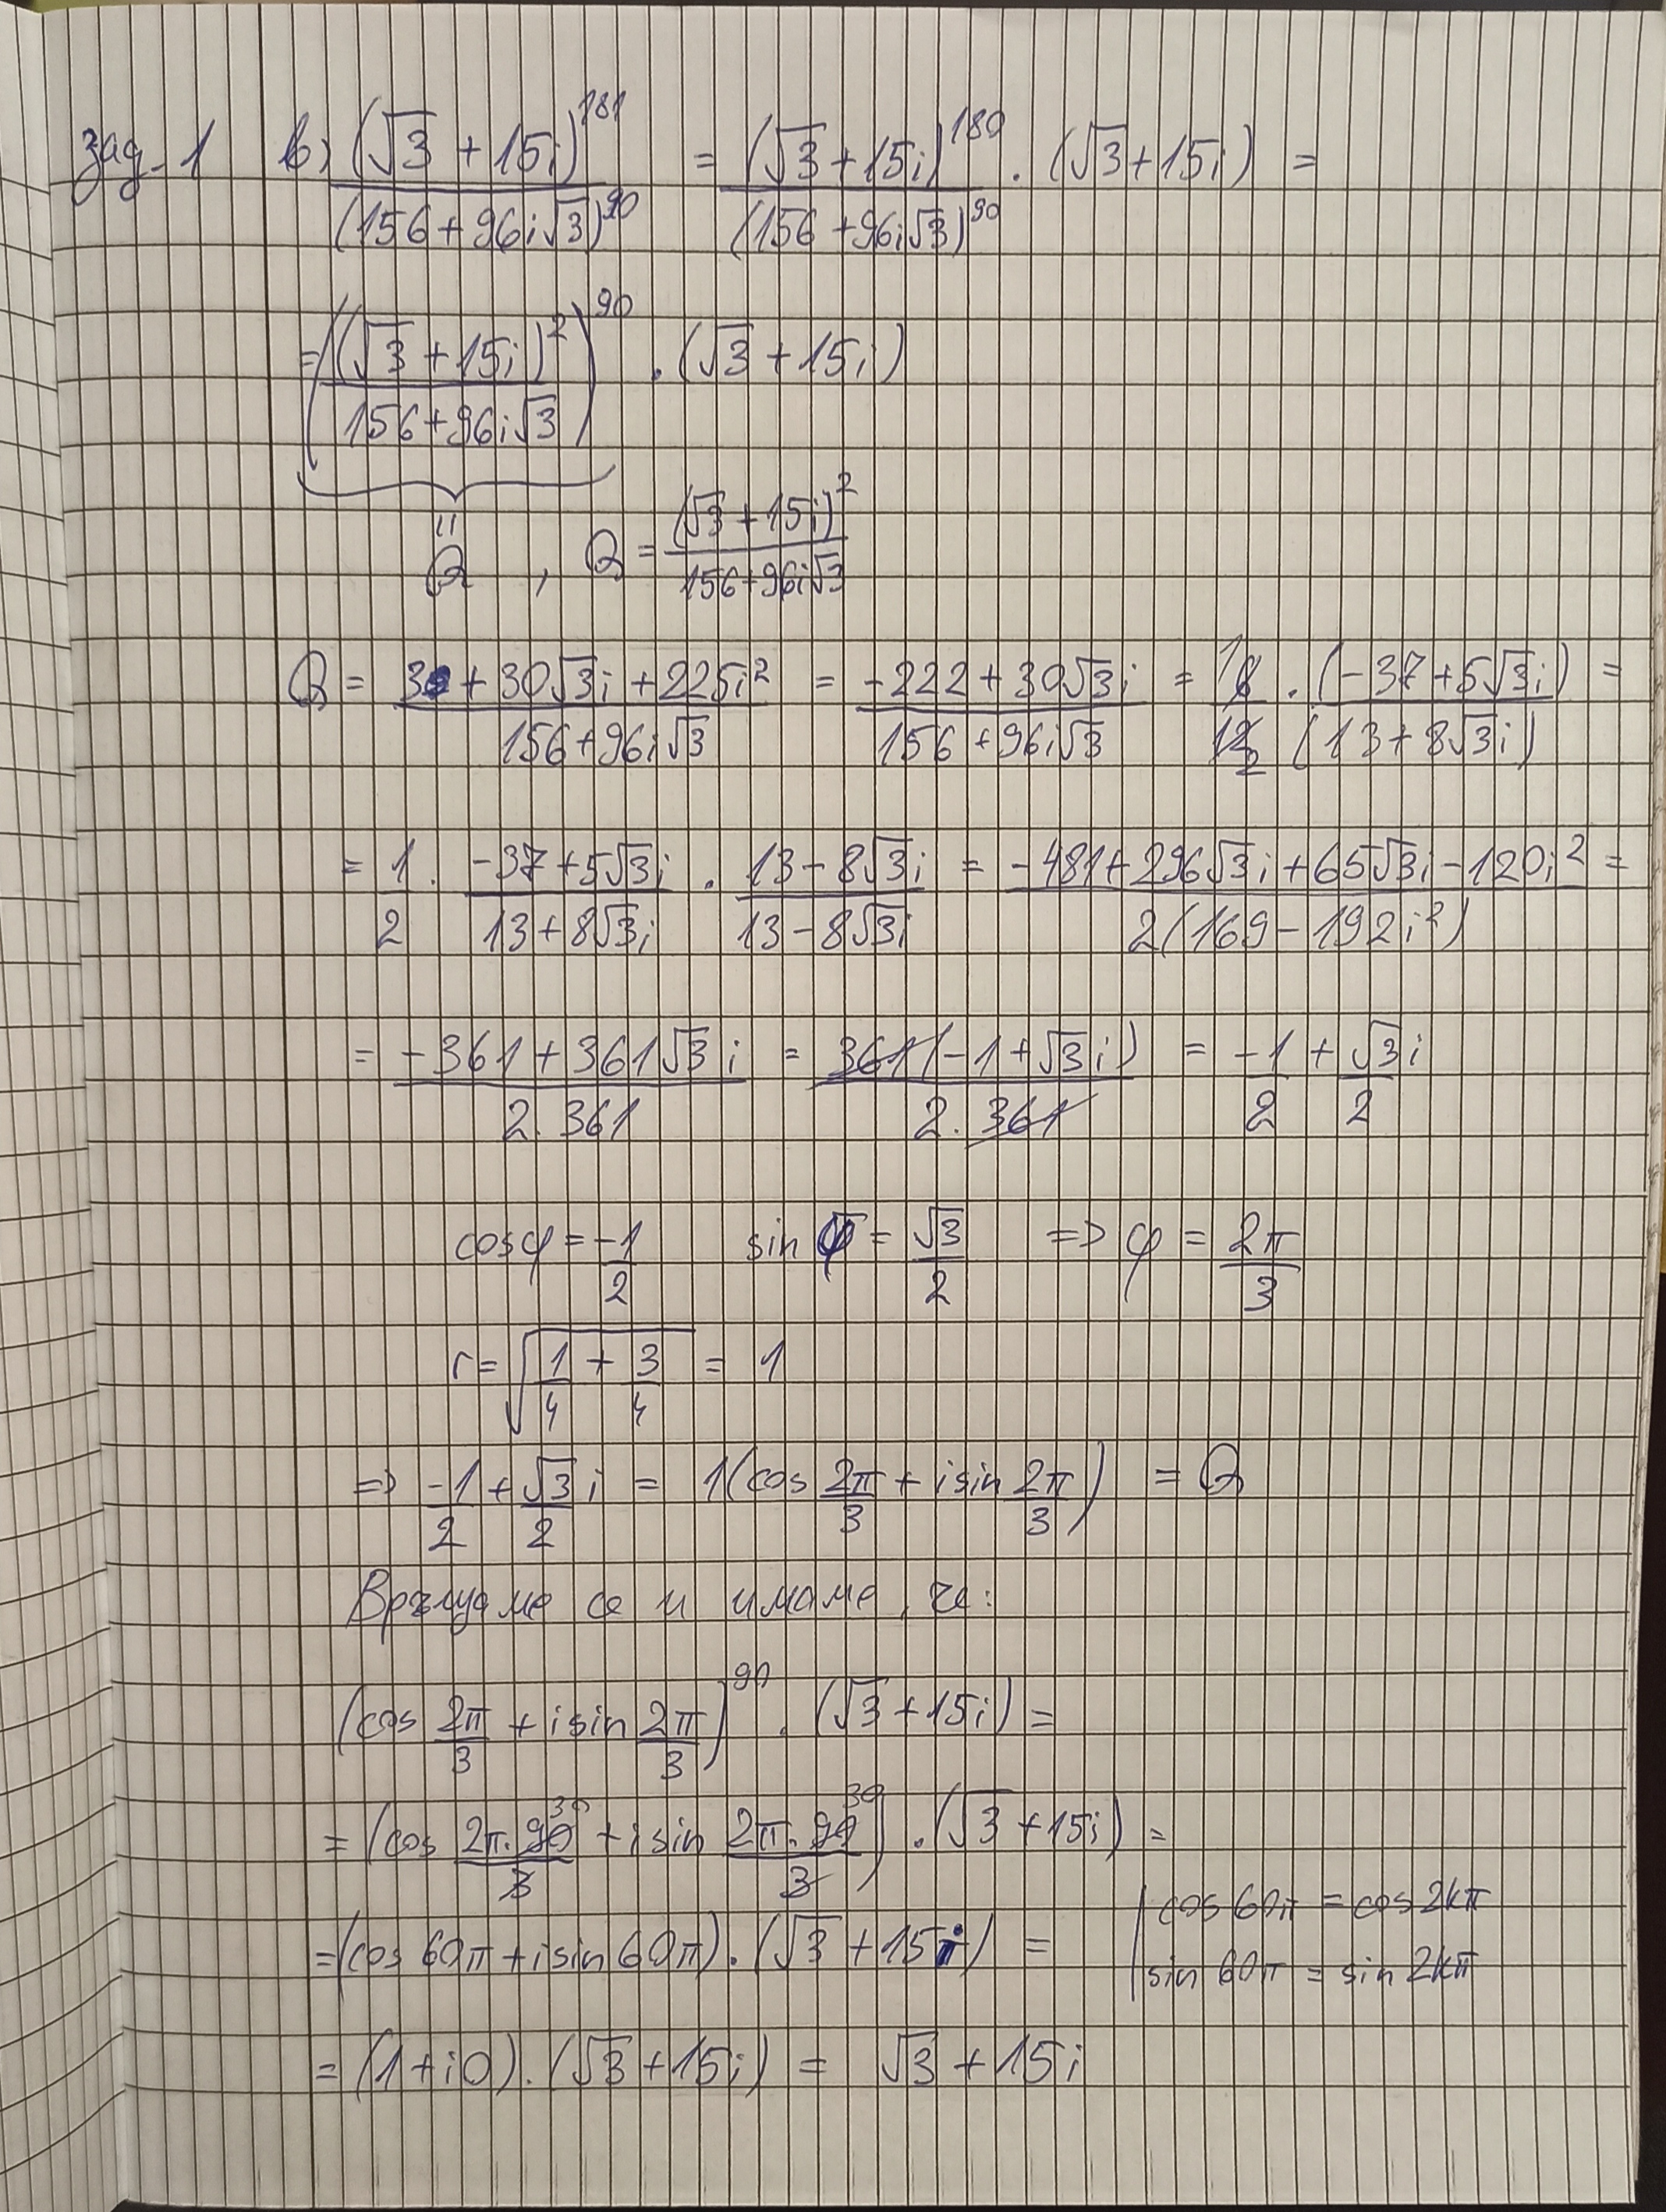 зад. 1 в) (√3 + 15i)^181 / (156 + 96i√3)^90 = (√3 + 15i)^180 / (156 + 96i√3)^90 . (√3 + 15i) =
= ((√3 + 15i)^2 / (156 + 96i√3))^90 . (√3 + 15i)
" Q , Q = (√3 + 15i)^2 / (156 + 96i√3)
Q = (3 + 30√3i + 225i^2) / (156 + 96i√3) = (-222 + 30√3i) / (156 + 96i√3) = 6 1 / 12 2 . (-37 + 5√3i) / (13 + 8√3i) =
= 1/2 . (-37 + 5√3i) / (13 + 8√3i) . (13 - 8√3i) / (13 - 8√3i) = (-481 + 296√3i + 65√3i - 120i^2) / 2(169 - 192i^2) =
= (-361 + 361√3i) / (2.361) = 361(-1 + √3i) / (2.361) = -1/2 + √3/2 i
cosφ = -1/2 sinφ = √3/2 => φ = 2π/3
r = √(1/4 + 3/4) = 1
=> -1/2 + √3/2 i = 1(cos 2π/3 + i sin 2π/3) = Q
Връщаме се и имаме, че:
(cos 2π/3 + i sin 2π/3)^90 . (√3 + 15i) =
= (cos 2π.90 30 / 3 + i sin 2π.90 30 / 3) . (√3 + 15i) =
= (cos 60π + i sin 60π) . (√3 + 15i) = | cos 60π = cos 2kπ
| sin 60π = sin 2kπ
= (1 + i0) . (√3 + 15i) = √3 + 15i